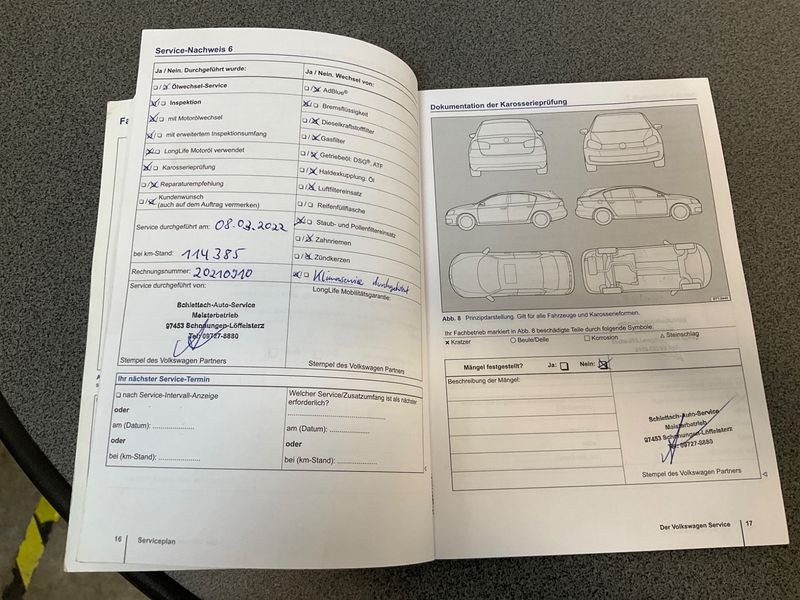 Service-Nachweis 6
Ja / Nein. Durchgeführt wurde:
❑ / ☒ Ölwechsel-Service
☒ / ❑ Inspektion
☒ / ❑ mit Motorölwechsel
☒ / ❑ mit erweitertem Inspektionsumfang
☒ / ❑ LongLife Motoröl verwendet
☒ / ❑ Karosserieprüfung
❑ / ☒ Reparaturempfehlung
❑ / ☒ Kundenwunsch
(auch auf dem Auftrag vermerken)
Service durchgeführt am: 08.03.2022
bei km-Stand: 114385
Rechnungsnummer: 20210910
Service durchgeführt von:
Schlettach-Auto-Service
Meisterbetrieb
97453 Schonungen-Löffelsterz
Tel. 09727-8880
Stempel des Volkswagen Partners
Ja / Nein. Wechsel von:
❑ / ☒ AdBlue®
☒ / ❑ Bremsflüssigkeit
❑ / ☒ Dieselkraftstofffilter
❑ / ☒ Gasfilter
❑ / ☒ Getriebeöl: DSG®, ATF
❑ / ☒ Haldexkupplung: Öl
❑ / ☒ Luftfiltereinsatz
❑ / ❑ Reifenfüllflasche
☒ / ❑ Staub- und Pollenfiltereinsatz
❑ / ☒ Zahnriemen
❑ / ☒ Zündkerzen
☒ / ❑ Klimaservice durchgeführt
LongLife Mobilitätsgarantie:
Stempel des Volkswagen Partners
Ihr nächster Service-Termin
❑ nach Service-Intervall-Anzeige
oder
am (Datum): ....................
oder
bei (km-Stand): ....................
Welcher Service/Zusatzumfang ist als nächster
erforderlich?
am (Datum): ....................
oder
bei (km-Stand): ....................
16
Serviceplan
Dokumentation der Karosserieprüfung
Abb. 8 Prinzipdarstellung. Gilt für alle Fahrzeuge und Karosserieformen.
Ihr Fachbetrieb markiert in Abb. 8 beschädigte Teile durch folgende Symbole.
✕ Kratzer ○ Beule/Delle □ Korrosion △ Steinschlag
Mängel festgestellt? Ja: ❑ Nein: ☒
Beschreibung der Mängel:
Schlettach-Auto-Service
Meisterbetrieb
97453 Schonungen-Löffelsterz
Tel. 09727-8880
Stempel des Volkswagen Partners
Der Volkswagen Service
17